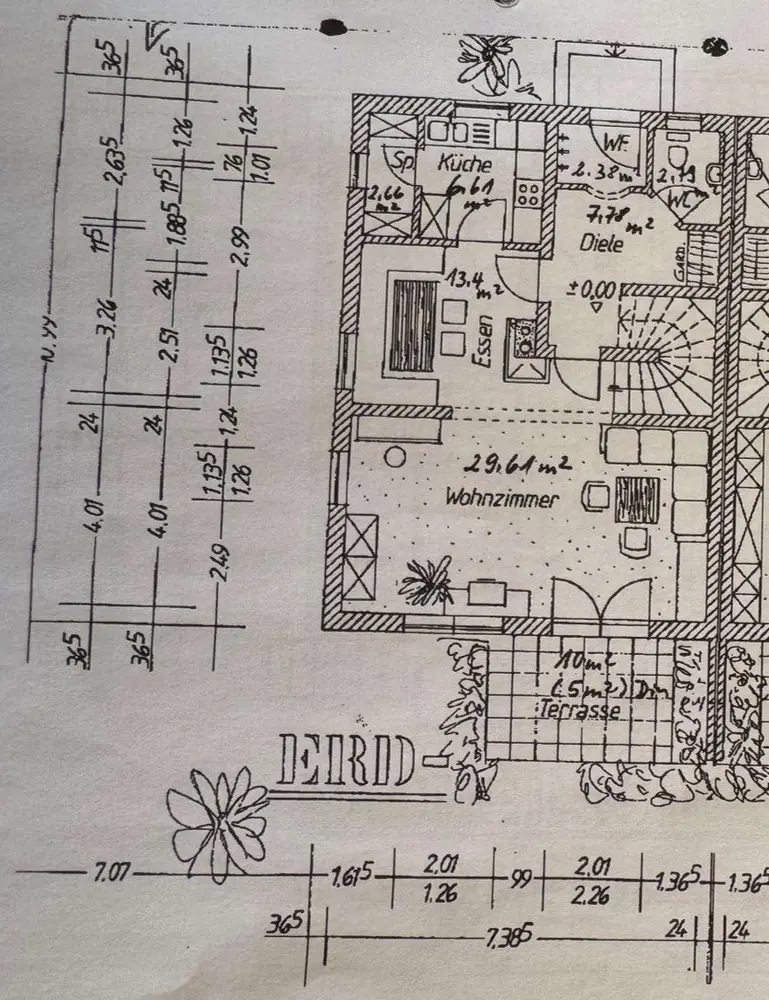 36⁵
36⁵
2,63⁵
1.26
1.24
76
1.01
11⁵
11⁵
1.88⁵
2.99
3.26
24
2.51
1.13⁵
1.26
24
24
1.24
1.13⁵
1.26
4.01
4.01
2.49
36⁵
36⁵
Sp
2,66 m²
Küche
6,61 m²
WF.
2.38 m²
WC
7,78 m²
Diele
GARD.
±0,00
13,4 m²
Essen
29,61 m²
Wohnzimmer
10 m²
(5 m²) Din
Terrasse
ERD-
7.07
1.61⁵
2,01
1.26
99
2,01
2.26
1.36⁵
1.36⁵
36⁵
7.38⁵
24
24